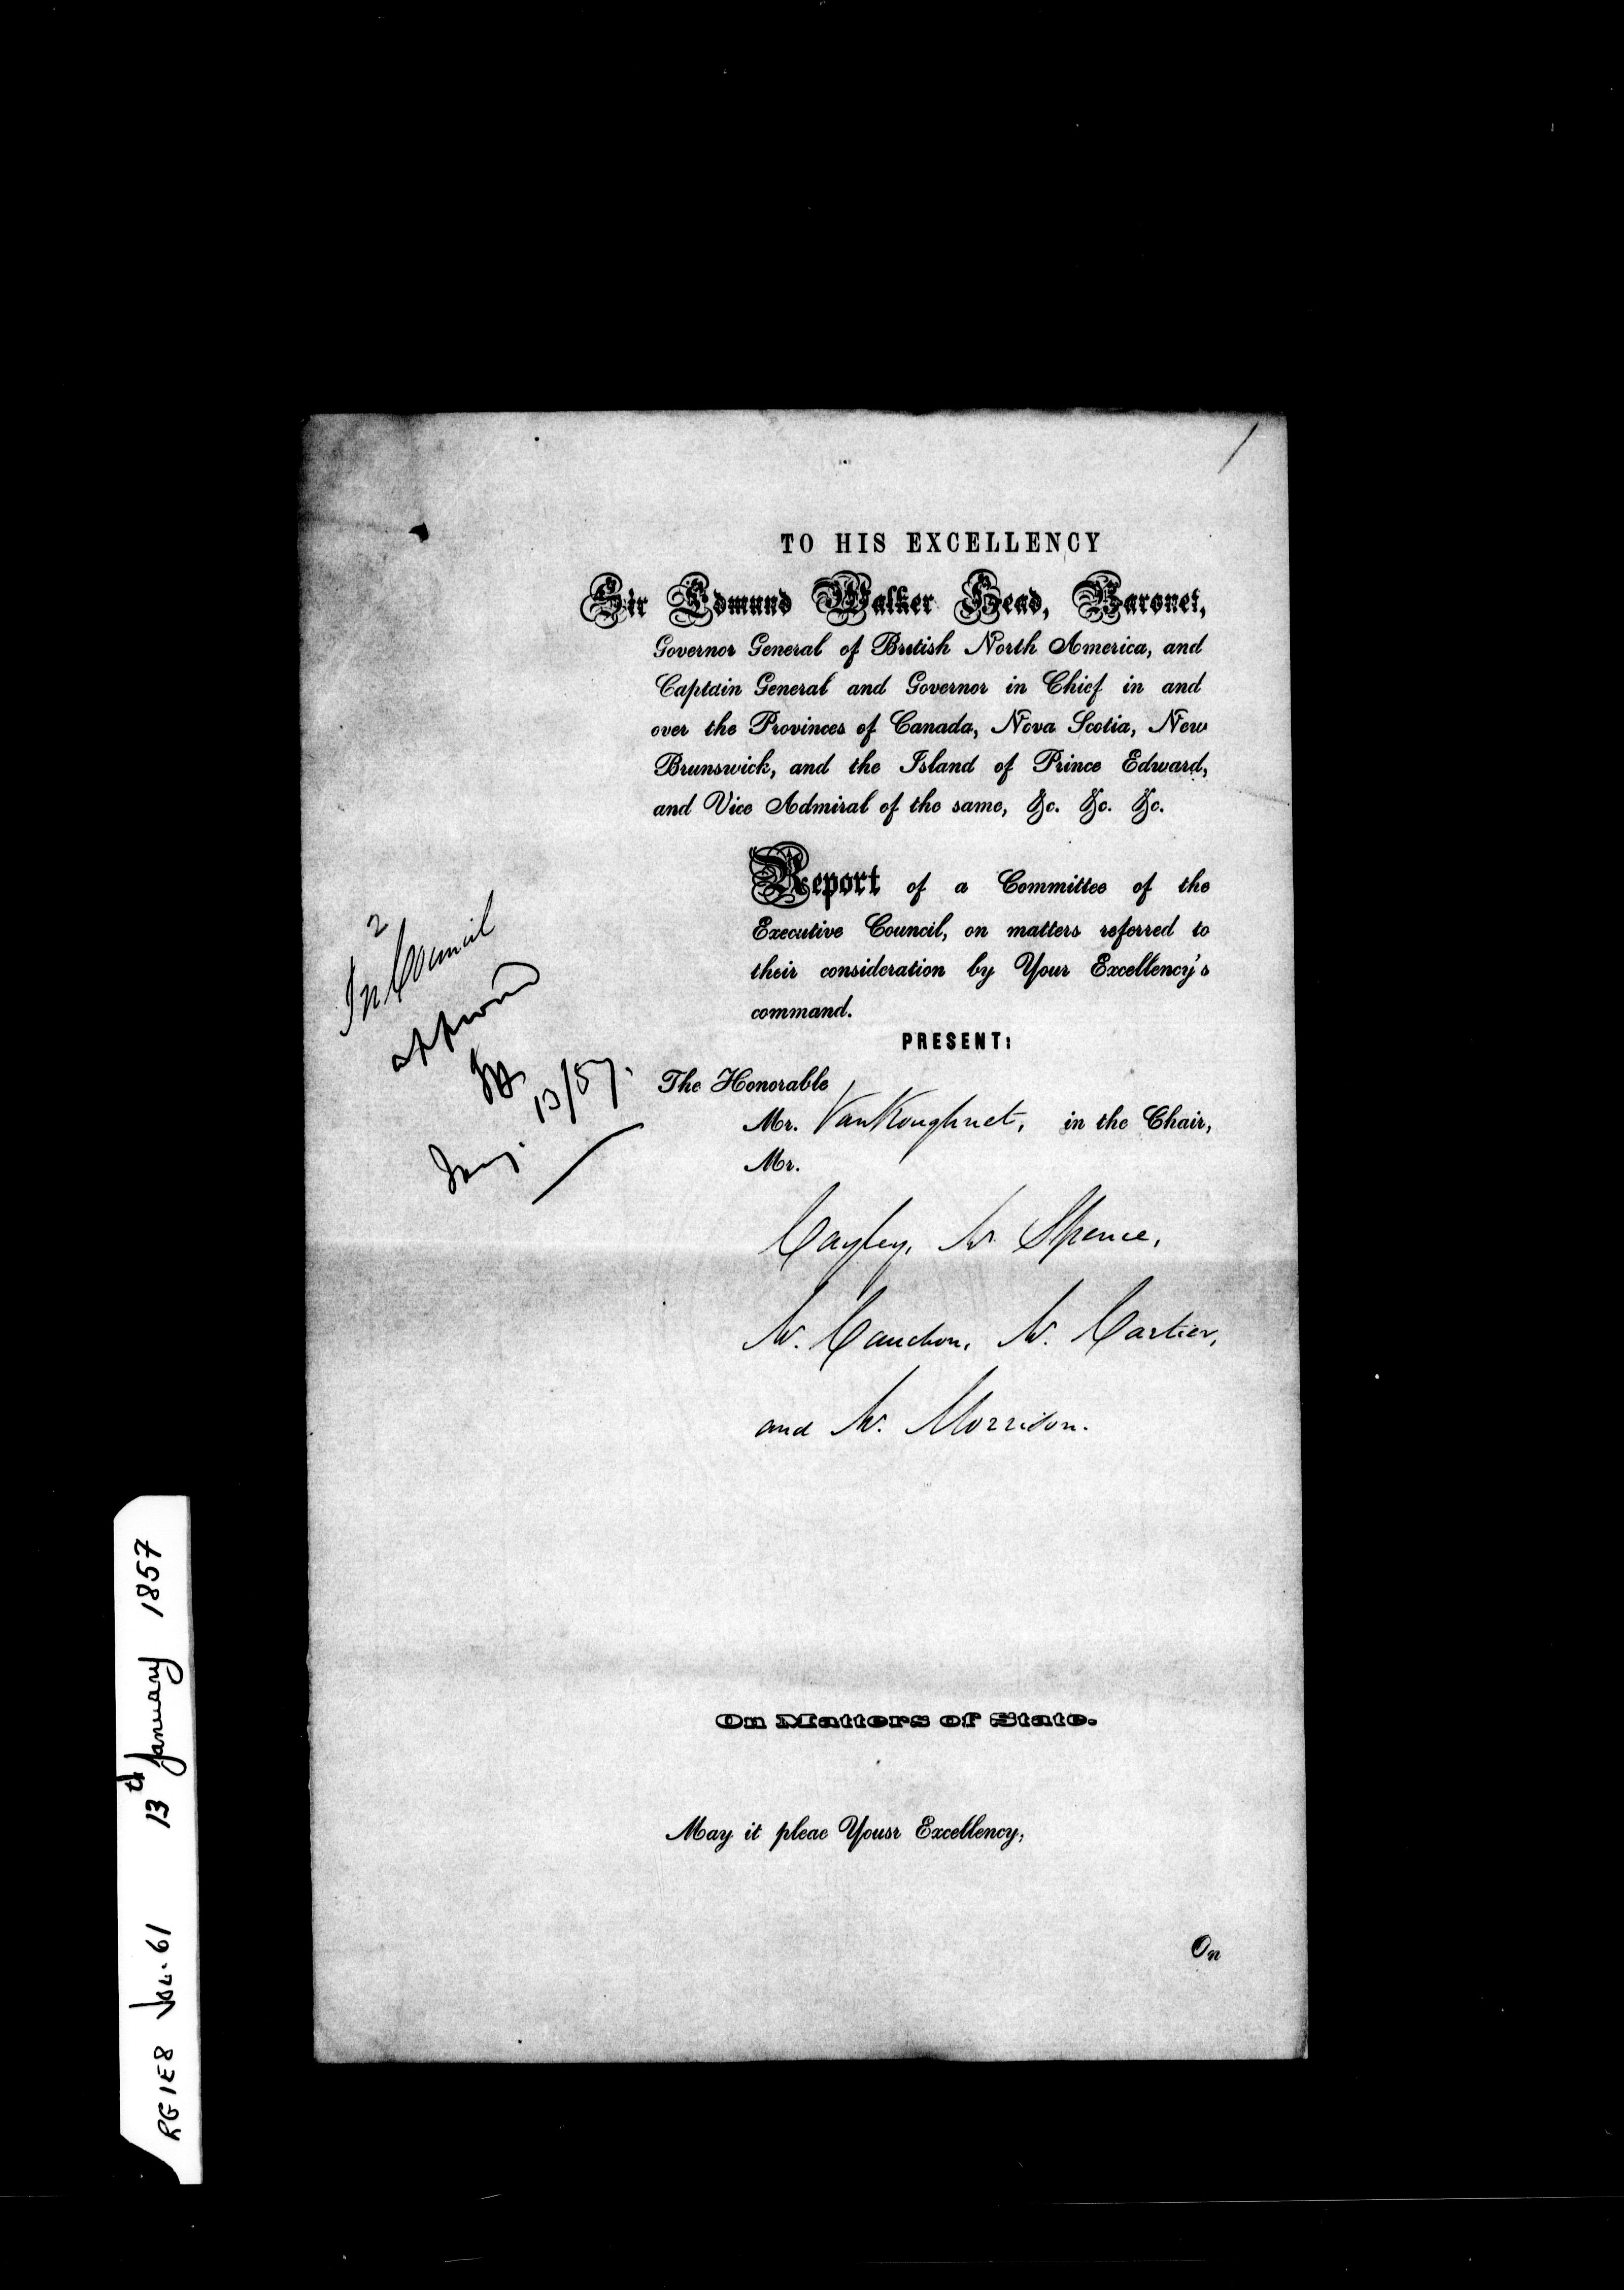 TO HIS EXCELLENCY
Sir Edmund Walker Head, Baronet,
Governor General of British North America, and
Captain General and Governor in Chief in and
over the Provinces of Canada, Nova Scotia, New
Brunswick, and the Island of Prince Edward,
and Vice Admiral of the same, &c. &c. &c.
Report of a Committee of the
Executive Council, on matters referred to
their consideration by Your Excellency's
command.
PRESENT:
The Honorable
Mr. VanKoughnet, in the Chair,
Mr.
Cayley, Mr. Spence,
Mr. Cauchon, Mr. Cartier,
and Mr. Morrison.
2
In Council
approved
Jany. 13/57.
On Matters of State.
May it pleae Yousr Excellency,
On
RG1E8 VOL. 61 13th January 1857